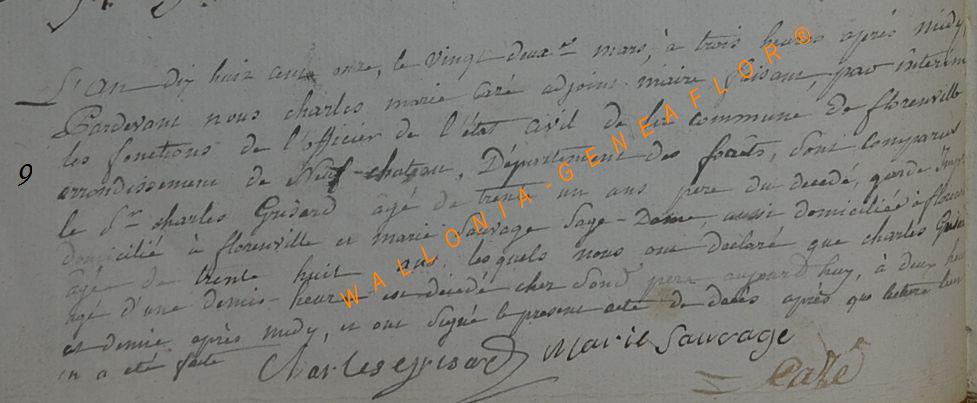 L'an dix huit cent onze, le vingt deux mars, à trois heures après midy,
Pardevant nous charles marie Cazé adjoint maire faisant par interim
les fonctions de l'officier de l'état civil de la commune de florenville
arrondissement de Neuf-chateau, Département des forêts, sont comparus
le Sr charles Grisard âgé de trente un ans pere du decedé, garde
domicilié à florenville et marie Sauvage Sage-Dame aussi domiciliée à
âgée de trente huit ans, lesquels nous ont déclaré que charles
agé d'une demis-heure est decedé chez sond pere aujourd huy, à deux
et demie après midy, et ont signé le present acte de decès après que lecture leur
en a été faite
Charles grisard Marie Sauvage
Cazé
9
WALLONIA-GENEAFLOR®